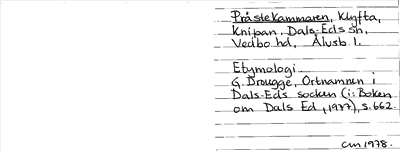 Prästekammaren, Klyfta,
Knipan, Dals-Eds sn,
Vedbo hd, Älvsb l.
Etymologi
G. Brougge, Ortnamnen i
Dals-Eds socken (i: Boken
om Dals Ed, 1977), s. 662.
cm 1978.